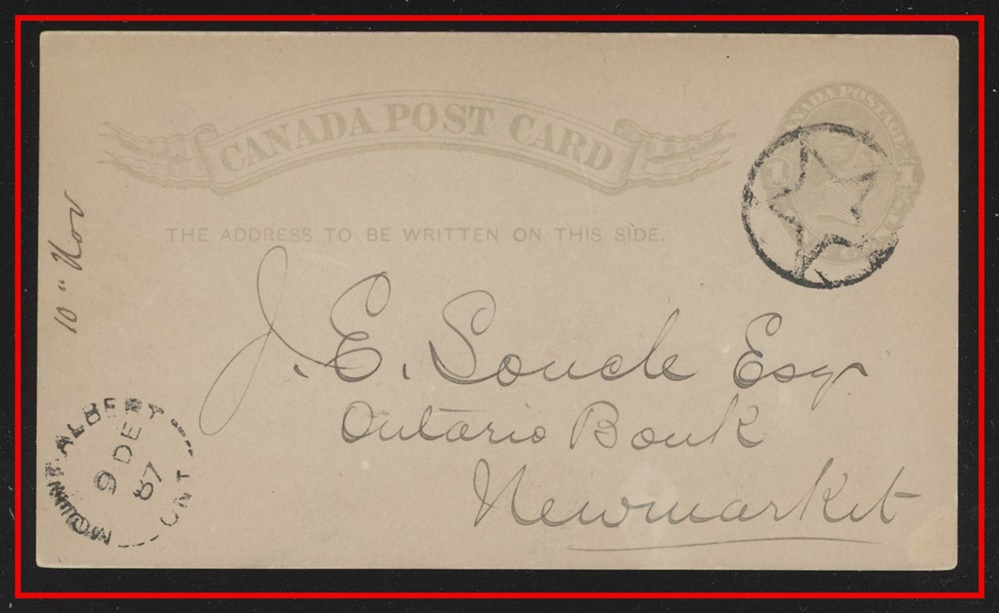 CANADA POST CARD
CANADA POSTAGE
1 1
THE ADDRESS TO BE WRITTEN ON THIS SIDE.
10 " Nov
J. E. Soucle Esqr
Ontario Bank
Newmarket
MOUNT ALBERT
9 DE
87
ONT